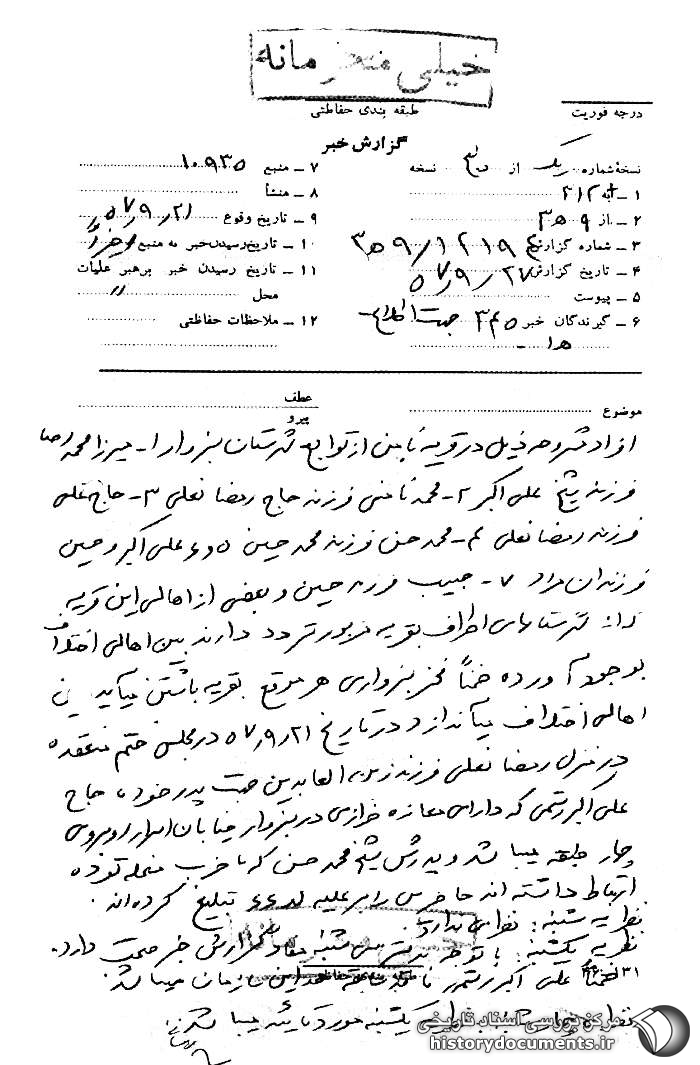 خیلی محرمانه
طبقه بندی حفاظتی
درجه فوریت
گزارش خبر
نسخه شماره یک از نسخه
۱ ـ به ۳۱۲
۲ ـ از ۹ ه‍ ۳
۳ ـ شماره گزارش ۱۲۱۹۴ / ۹ ه‍ ۳
۴ ـ تاریخ گزارش ۵۷/۹/۲۷
۵ ـ پیوست
۶ ـ گیرندگان خبر ۳۴۵ جهت اطلاع
۷ ـ منبع ۱۰۹۳۵
۸ ـ منشأ
۹ ـ تاریخ وقوع ۵۷/۹/۲۱
۱۰ ـ تاریخ رسیدن خبر به منبع
۱۱ ـ تاریخ رسیدن خبر برهبر عملیات
محل 〃
۱۲ ـ ملاحظات حفاظتی
موضوع
عطف
پیرو
افراد مشروحه ذیل در قریه باشتین از توابع شهرستان سبزوار ۱ـ میرزا محمدرضا
فرزند شیخ علی اکبر ۲ـ محمد فرزند حاج رمضانعلی ۳ـ حاج علی
فرزند رمضانعلی ۴ـ محمد حسن فرزند محمد حسین ۵ و ۶ علی اکبر و حسین
فرزندان مراد ۷ـ حبیب فرزند حسین و بعضی از اهالی این قریه
که از شهرستانهای اطراف بقریه مزبور تردد دارند بین اهالی اختلاف
بوجود آورده ضمناً فخر سبزواری هر موقع بقریه باشتین میآید بین
اهالی اختلاف میاندازد و در تاریخ ۵۷/۹/۲۱ در مجلس ختم منعقده
در منزل رمضانعلی فرزند زین العابدین جهت پدر خود، حاج
علی اکبر رستمی که دارای مغازه خرازی در سبزوار خیابان اسرار روبروی
چهار طبقه میباشد و پسرش شیخ محمد حسن که با حزب منحله توده
ارتباط داشته اند حاضرین را بر علیه تبلیغ کرده اند.
نظریه شنبه: نظری ندارد
نظریه یکشنبه: با توجه شنبه مفاد گزارش خبر صحت دارد.
ضمناً علی اکبر رستمی سازمان میباشد. ۳۱
طبقه بندی حفاظتی
نظریه یکشنبه مورد تأیید میباشد.
مرکز بررسی اسناد تاریخی
historydocuments.ir